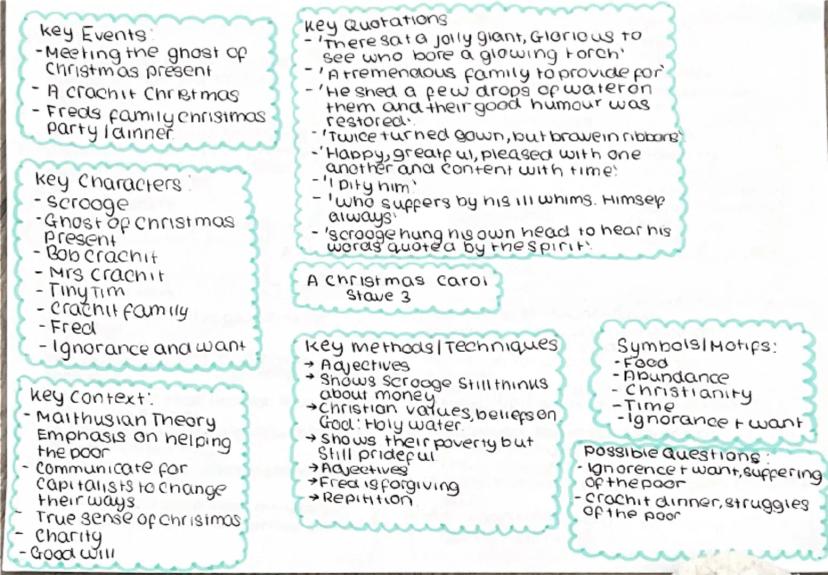 Key Events:
- Meeting the ghost of
Christmas present
- A crachit Christmas
- Freds family Christmas
party / dinner
Key Characters:
- Scrooge
- Ghost of Christmas
present
- Bob crachit
- Mrs crachit
- Tiny Tim
- Crachit family
- Fred
- Ignorance and want
Key Context:
- Malthusian Theory
Emphasis on helping
the poor
- Communicate for
capitalists to change
their ways
- True sense of christmas
- Charity
- Good will
Key Quotations
- 'There sat a jolly giant, Glorious to
see who bore a glowing torch'
- 'A tremendous family to provide for'
- 'He shed a few drops of water on
them and their good humour was
restored'.
- 'Twice turned gown, but brave in ribbons'
- 'Happy, greatful, pleased with one
another and content with time'.
- 'I pity him'
- 'Who suffers by his ill whims. Himself
always'
- 'Scrooge hung his own head to hear his
words quoted by the spirit'.
A Christmas Carol
Stave 3
Key methods / Techniques
→ Adjectives
→ Shows Scrooge still thinks
about money
→ Christian values, beliefs on
God: Holy water
→ Shows their poverty but
still prideful
→ Adjectives
→ Fred is forgiving
→ Repitition
Symbols / Motifs:
- Food
- Abundance
- Christianity
- Time
- Ignorance + want
Possible Questions:
- Ignorence + want, suffering
of the poor
- Crachit dinner, struggles
of the poor